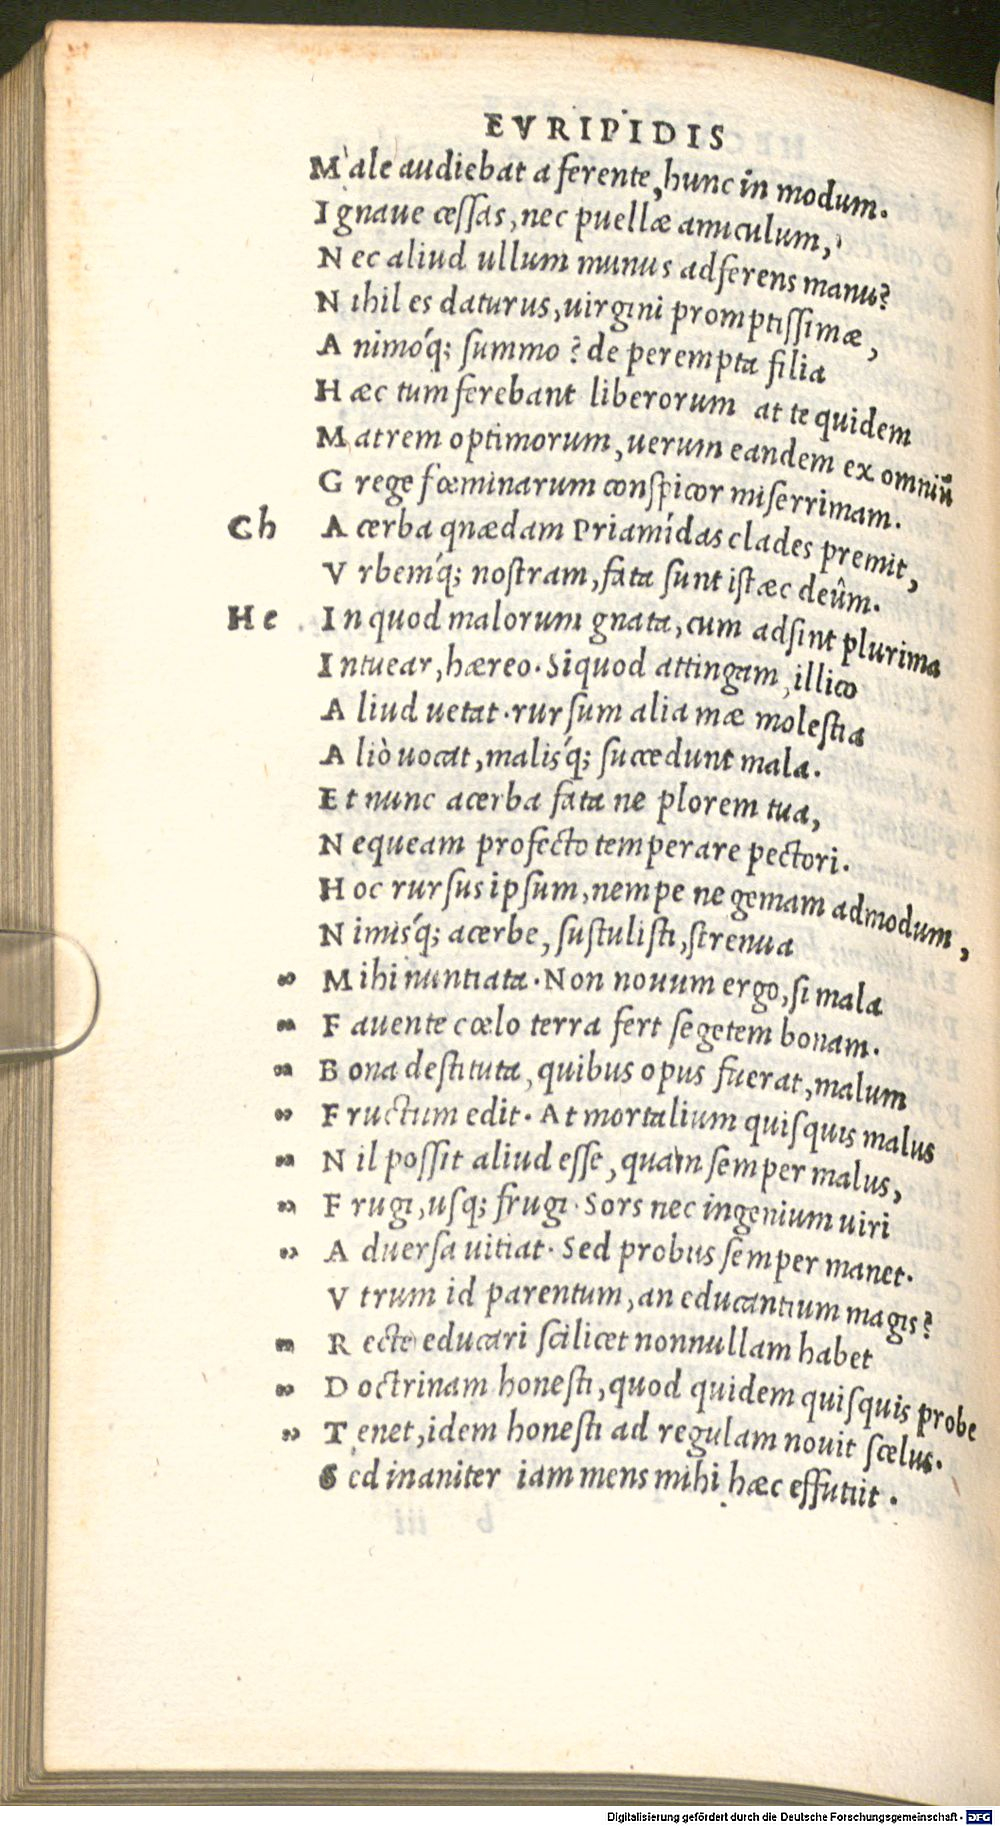 EVRIPIDIS
Male audiebat a ferente, hunc in modum.
Ignaue cessas, nec puellæ amiculum,
Nec aliud ullum munus adferens manu?
Nihil es daturus, uirgini promptissimæ,
Animóq; summo? de perempta filia
Hæc tum ferebant liberorum at te quidem
Matrem optimorum, uerum eandem ex omniũ
Grege fœminarum conspicor miserrimam.
Ch Acerba qnædam Priamídas clades premit,
Vrbemq́; nostram, fata sunt istæc deûm.
He In quod malorum gnata, cum adsint plurima
Intuear, hæreo. Siquod attingam, illico
Aliud uetat. rursum alia mæ molestia
Aliò uocat, malisq́; succedunt mala.
Et nunc acerba fata ne plorem tua,
Nequeam profecto temperare pectori.
Hoc rursus ipsum, nempe ne gemam admodum,
Nimisq́; acerbe, sustulisti, strenua
" Mihi nuntiata. Non nouum ergo, si mala
" Fauente cœlo terra fert segetem bonam.
" Bona destituta, quibus opus fuerat, malum
" Fructum edit. At mortalium quisquis malus
" Nil possit aliud esse, quam semper malus,
" Frugi, usq; frugi. Sors nec ingenium uiri
" Aduersa uitiat. Sed probus semper manet.
Vtrum id parentum, an educantium magis?
" Recte educari scilicet nonnullam habet
" Doctrinam honesti, quod quidem quisquis probe
" Tenet, idem honesti ad regulam nouit scelus.
Sed inaniter iam mens mihi hæc effutiit.
Digitalisierung gefördert durch die Deutsche Forschungsgemeinschaft - DFG